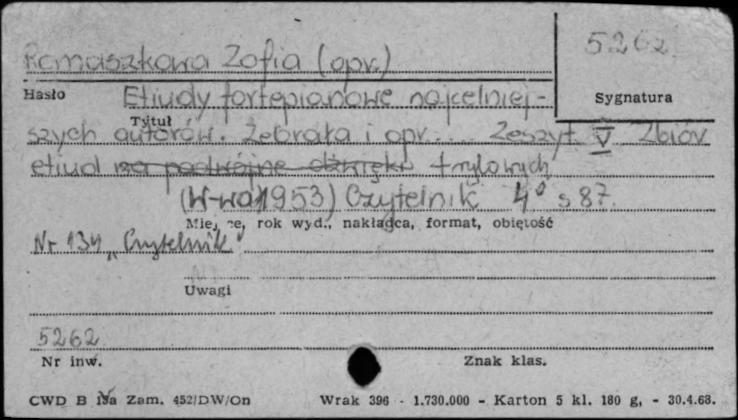 5262
Romaszkowa Zofia (opr.)
Hasło Etiudy fortepianowe najcelniej-
Sygnatura
Tytuł
szych autorów. Zebrała i opr.... Zeszyt V Zbiór
etiud na podwójne dźwięki trylowych
(W-wa 1953) Czytelnik 4° s 87.
Miejsce, rok wyd., nakładca, format, objętość
Nr 134 „Czytelnik"
Uwagi
5262
Nr inw. Znak klas.
CWD B Zam. 452/DW/On Wrak 396 - 1.730.000 - Karton 5 kl. 180 g, - 30.4.68.